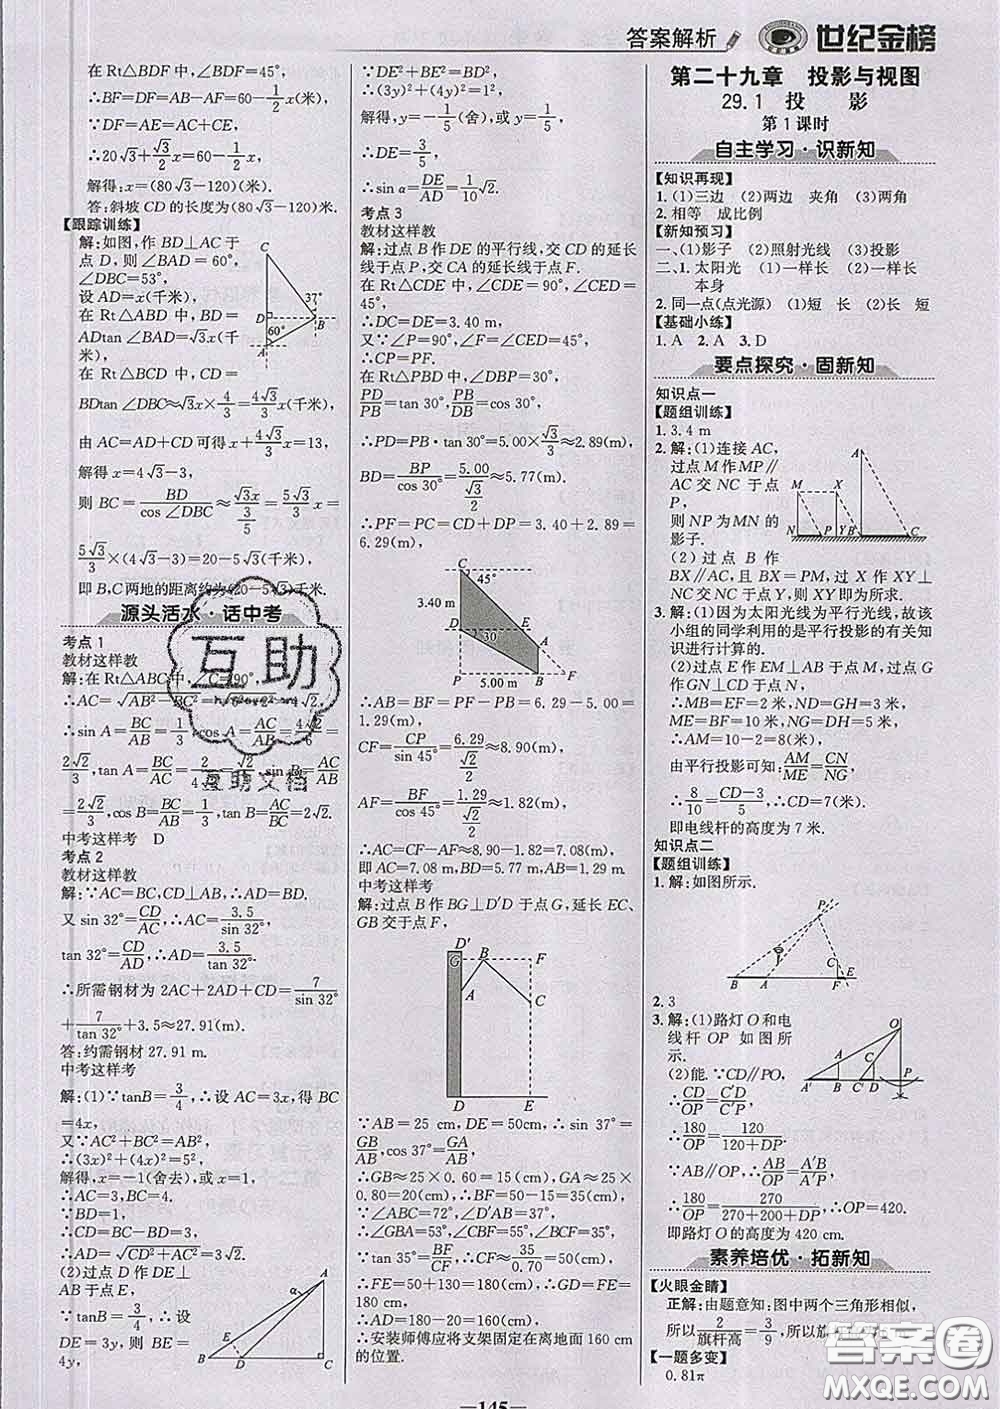 答案解析 世纪金榜
在 Rt△BDF 中,∠BDF=45°,
∴BF=DF=AB-AF=60-1/2x(米).
∵DF=AE=AC+CE,
∴20√3+√3/2x=60-1/2x,
解得:x=(80√3-120)(米).
答:斜坡 CD 的长度为(80√3-120)米.
【跟踪训练】
解:如图,作 BD⊥AC 于
点 D,则∠BAD=60°,
∠DBC=53°,
设 AD=x(千米),
在 Rt△ABD 中,BD=
ADtan ∠BAD=√3x(千米).
在 Rt△BCD 中,CD=
BDtan ∠DBC≈√3x×4/3=4√3/3x(千米),
由 AC=AD+CD 可得 x+4√3/3x=13,
解得 x=4√3-3,
则 BC=BD/cos ∠DBC≈√3x/(3/5)=5√3/3x=
5√3/3×(4√3-3)=20-5√3(千米),
即 B,C 两地的距离约为(20-5√3)千米.
37°
60°
C
D
B
A
源头活水·话中考
考点 1
教材这样教
解:在 Rt△ABC 中,∠C=90°,
∴sin A=BC/AB=1/3,cos A=AC/AB=4√2/6=
2√2/3,tan A=BC/AC=
=2√2/3,cos B=BC/AB=1/3,tan B=AC/BC=2√2.
中考这样考 D
考点 2
教材这样教
解:∵AC=BC,CD⊥AB,∴AD=BD.
又 sin 32°=CD/AC,∴AC=3.5/sin 32°,
tan 32°=CD/AD,∴AD=3.5/tan 32°.
∴所需钢材为 2AC+2AD+CD=7/sin 32°
+7/tan 32°+3.5≈27.91(m).
答:约需钢材 27.91 m.
中考这样考
解:(1)∵tanB=3/4,∴设 AC=3x,得 BC
=4x,
又∵AC²+BC²=AB²,
∴(3x)²+(4x)²=5²,
解得,x=-1(舍去),或 x=1,
∴AC=3,BC=4,
∵BD=1,
∴CD=BC-BD=3,
∴AD=√(CD²+AC²)=3√2.
(2)过点 D 作 DE⊥
AB 于点 E,
∵tanB=3/4,∴设
DE=3y,则 BE=
4y,
A
α
E
B D C
∵DE²+BE²=BD²,
∴(3y)²+(4y)²=1²,
解得,y=-1/5(舍),或 y=1/5,
∴DE=3/5,
∴sin α=DE/AD=1/10√2.
考点 3
教材这样教
解:过点 B 作 DE 的平行线,交 CD 的延长
线于点 P,交 CA 的延长线于点 F.
在 Rt△CDE 中,∠CDE=90°,∠CED=
45°,
∴DC=DE=3.40 m,
又∵∠P=90°,∠F=∠CED=45°,
∴CP=PF.
在 Rt△PBD 中,∠DBP=30°,
PD/PB=tan 30°,PB/DB=cos 30°,
∴PD=PB·tan 30°=5.00×√3/3≈2.89(m).
BD=BP/cos 30°=5.00/(√3/2)≈5.77(m).
∴PF=PC=CD+DP=3.40+2.89=
6.29(m).
C
45°
3.40 m
D
30°
E
A
P
5.00 m
B
F
∴AB=BF=PF-PB=6.29-5.00=
1.29(m).
CF=CP/sin 45°=6.29/(√2/2)≈8.90(m),
AF=BF/cos 45°=1.29/(√2/2)≈1.82(m).
∴AC=CF-AF=8.90-1.82=7.08(m).
即 AC=7.08 m,BD=5.77 m,AB=1.29 m.
中考这样考
解:过点 B 作 BG⊥D′D 于点 G,延长 EC、
GB 交于点 F,
D′
G B F
A C
D E
∵AB=25 cm,DE=50cm,∴sin 37°=
GB/AB,cos 37°=GA/AB,
∴GB≈25×0.60=15(cm),GA≈25×
0.80=20(cm),∴BF=50-15=35(cm).
∵∠ABC=72°,∠D′AB=37°,
∴∠GBA=53°,∠CBF=55°,∠BCF=35°,
∵tan 35°=BF/CF,∴CF≈35/0.70=50(cm),
∴FE=50+130=180(cm),∴GD=FE=
180(cm),
∴AD=180-20=160(cm),
∴安装师傅应将支架固定在离地面 160 cm
的位置.
第二十九章 投影与视图
29.1 投 影
第 1 课时
自主学习·识新知
【知识再现】
1.(1)三边 (2)两边 夹角 (3)两角
2.相等 成比例
【新知预习】
一、(1)影子 (2)照射光线 (3)投影
二、1.太阳光 (1)一样长 (2)一样长
本身
2.同一点(点光源) (1)短 长 (2)长 短
【基础小练】
1.A 2.A 3.D
要点探究·固新知
知识点一
【题组训练】
1.3.4 m
2.解:(1)连接 AC,
过点 M 作 MP∥
AC 交 NC 于点
P,
则 NP 为 MN 的
影子.
(2)过点 B 作
BX∥AC,且 BX=MP,过 X 作 XY⊥
NC 交 NC 于点 Y,则 XY 即为所求.
A
M X
N P Y B C
3.解:(1)因为太阳光线为平行光线,故该
小组的同学利用的是平行投影的有关知
识进行计算的.
(2)过点 E 作 EM⊥AB 于点 M,过点 G
作 GN⊥CD 于点 N,
∴MB=EF=2 米,ND=GH=3 米,
ME=BF=10 米,NG=DH=5 米.
∴AM=10-2=8(米),
由平行投影可知:AM/ME=CN/NG,
∴8/10=(CD-3)/5,∴CD=7(米).
即电线杆的高度为 7 米.
知识点二
【题组训练】
1.解:如图所示.
P
C
B A F E
2.3
3.解:(1)路灯 O 和电
线杆 OP 如图所
示.
(2)能.∵CD∥PO,
∴CD/OP=C′D/D′P
∴180/OP=120/(120+DP).
∵AB∥OP,∴AB/OP=A′B/A′P
∴180/OP=270/(270+200+DP),∴OP=420.
即路灯 O 的高度为 420 cm.
O
A C
A′ B C′ D P
素养培优·拓新知
【火眼金睛】
正解:由题意知:图中两个三角形相似,
所以2/旗杆高=3/9,所以
【一题多变】
0.81π
互助
互助文档
答案圈
MXQE.COM
—145—